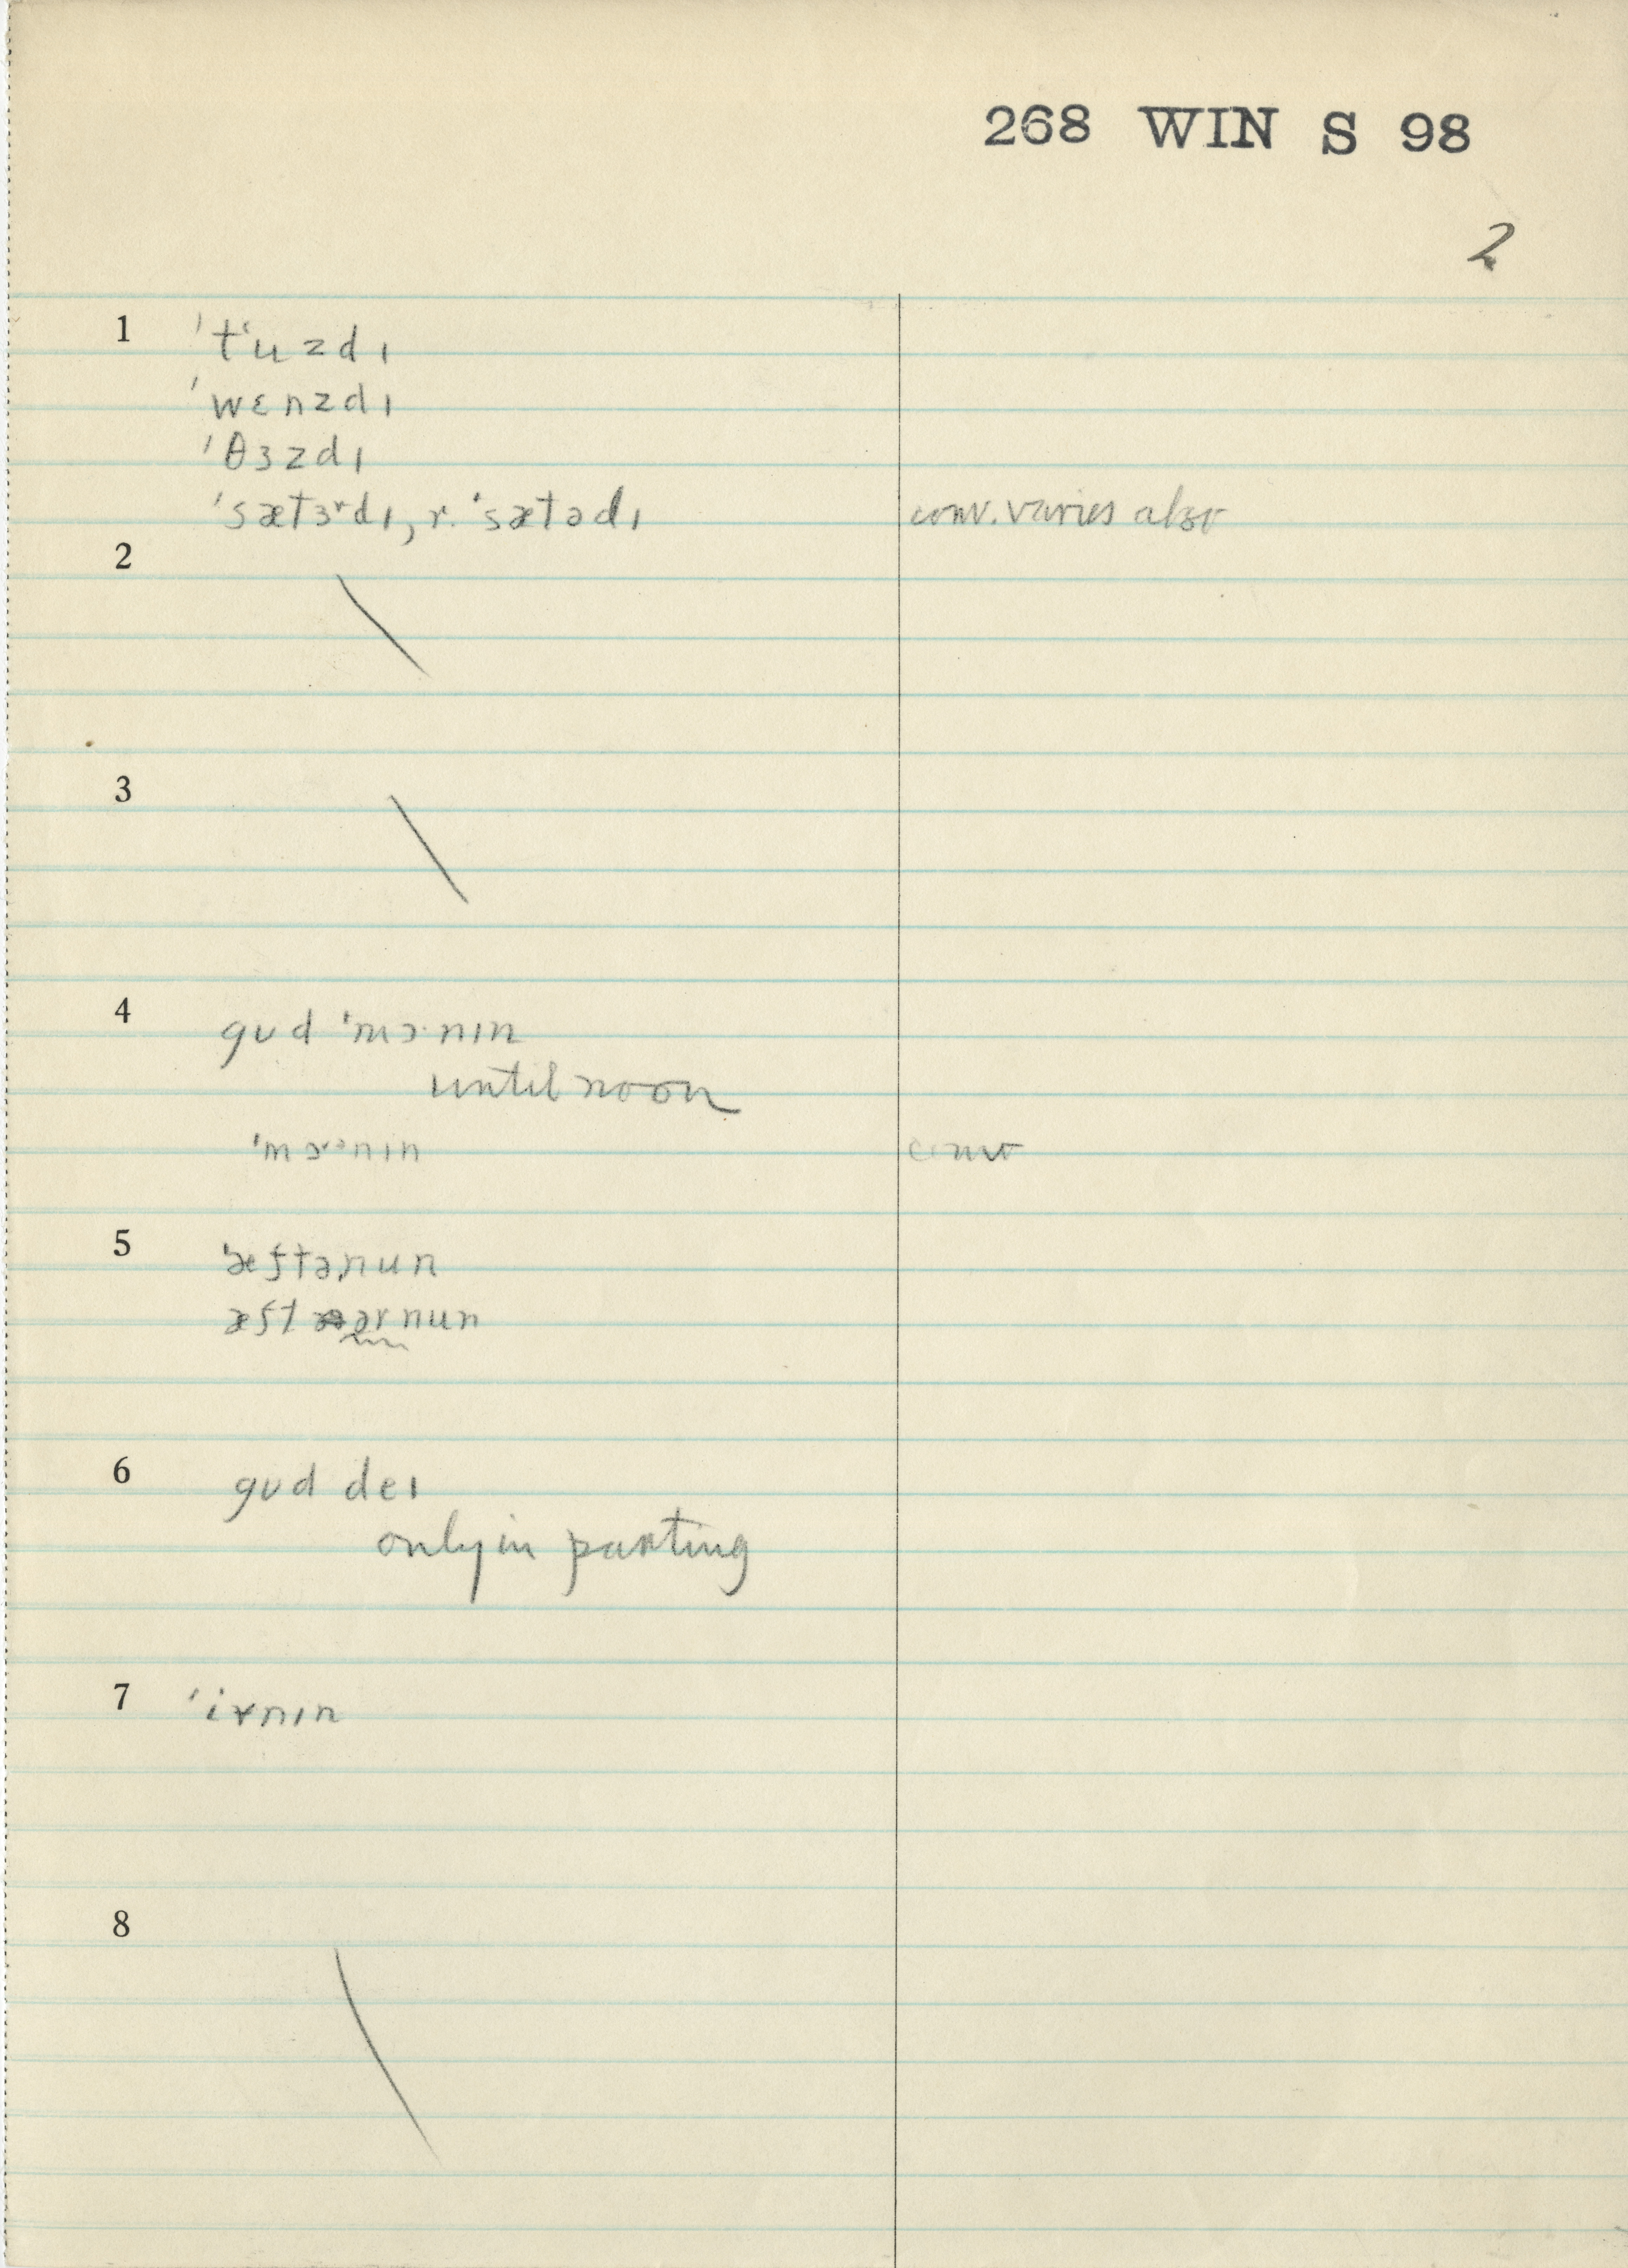 268 WIN S 98
2
1 ˈtʻuzdɪ
ˈwɛnzdɪ
ˈθɜzdɪ
ˈsætɜʳdɪ, r. ˈsætədɪ conv. varies also
2
3
4 gʊd ˈmɔ·nɪn
until noon
ˈmɔʳᵊnɪn conv
5 ˈæftəˌnun
æftərnun
6 gʊd deɪ
only in parting
7 ˈivnɪn
8